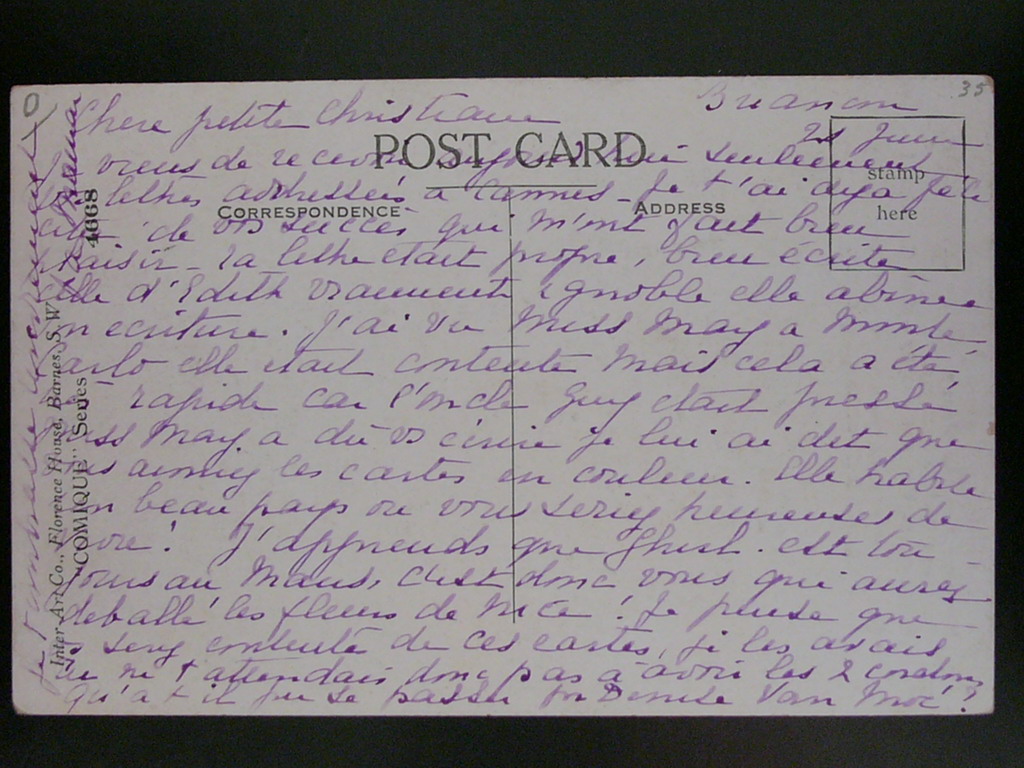 35
Briancon
Chere petite Christiane
21 Juin
POST CARD
viens de recevoir seulement
stamp
lettres addressées a Cannes. Je t'ai deja féli
here
CORRESPONDENCE
ADDRESS
cité de vos succès qui m'ont fait bien
plaisir - ta lettre etait propre, bien écrite
elle d'Edith vraiment ignoble elle abîme
son ecriture. J'ai vu Miss May a Monte
Carlo elle etait contente mais cela a été
rapide car l'oncle Guy etait pressé
Miss May a dû vs écrire je lui ai dit que
vous aimiez les cartes en couleur. Elle habite
un beau pays ou vous seriez heureuses de
vivre! J'apprends que Ghisl. est
vous au Mans, c'est donc vous qui aurez
deballé les fleurs de Nice! Je pense que
tu seras contente de ces cartes, je les avais
tu ne t'attendais donc pas à avoir les 2 cordons
qu'a t il pu se passer pr Denise Van Moé?
Je t'embrasse
Inter-Art Co., Florence House, Barnes, S.W.
"COMIQUE" Series
4668